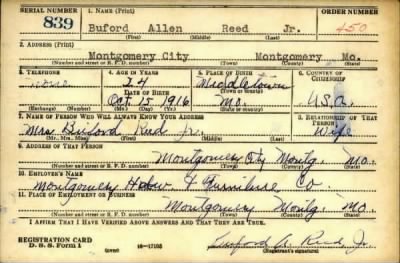 SERIAL NUMBER 1. NAME (Print) ORDER NUMBER
839 Buford Allen Reed Jr. 450
(First) (Middle) (Last)
2. ADDRESS (Print)
Montgomery City Montgomery Mo.
(Number and street or R. F. D. number) (Town) (County) (State)
3. TELEPHONE 4. AGE IN YEARS 5. PLACE OF BIRTH 6. COUNTRY OF CITIZENSHIP
None 24 Middletown
DATE OF BIRTH (Town or county)
Oct. 15 1916 Mo. U.S.A.
(Exchange) (Number) (Mo.) (Day) (Yr.) (State or country)
7. NAME OF PERSON WHO WILL ALWAYS KNOW YOUR ADDRESS 8. RELATIONSHIP OF THAT PERSON
Mrs. Buford Reed Jr. Wife
(Mr., Mrs., Miss) (First) (Middle) (Last)
9. ADDRESS OF THAT PERSON
Montgomery City Montg. Mo.
(Number and street or R. F. D. number) (Town) (County) (State)
10. EMPLOYER'S NAME
Montgomery Hdw. & Furniture Co.
11. PLACE OF EMPLOYMENT OR BUSINESS
Montgomery Montg. Mo.
(Number and street or R. F. D. number) (Town) (County) (State)
I AFFIRM THAT I HAVE VERIFIED ABOVE ANSWERS AND THAT THEY ARE TRUE.
REGISTRATION CARD
D. S. S. Form 1 (over) 16-17105 Buford A. Reed Jr.
(Registrant's signature)